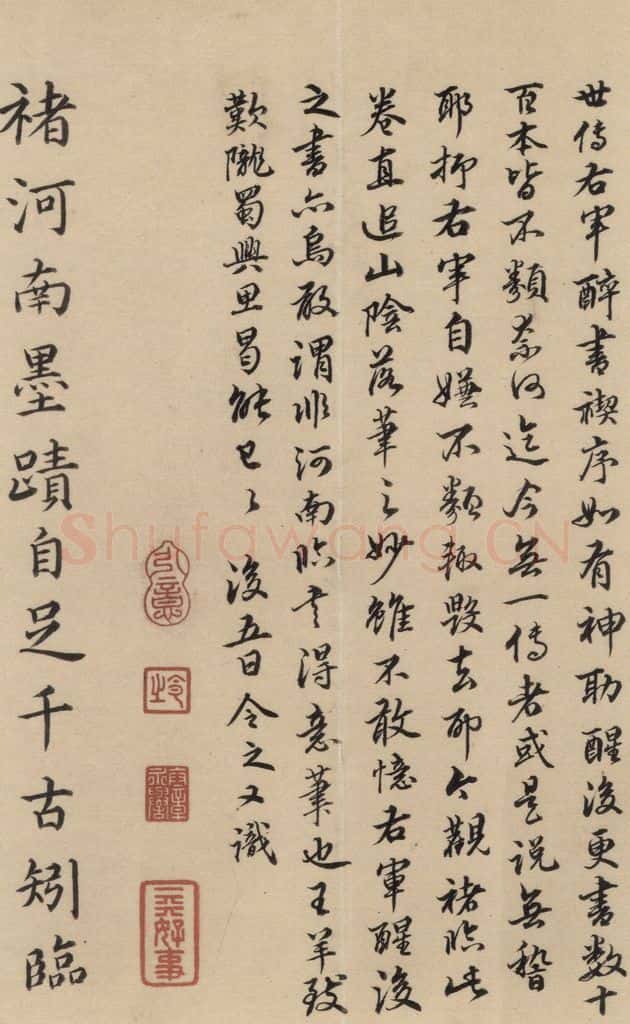 世傳右軍醉書禊序如有神助醒後更書數十
百本皆不類奈何迄今無一傳者或是說無稽
耶抑右軍自嫌不類輒毀去耶今觀褚臨此
卷直追山陰落筆之妙雖不敢憶右軍醒後
之書亦烏敢謂非河南臨書得意筆也王羊致
歎隴蜀興思曷能已已 後五日令之又識
褚河南墨蹟自足千古矧臨
Shufawang.CN